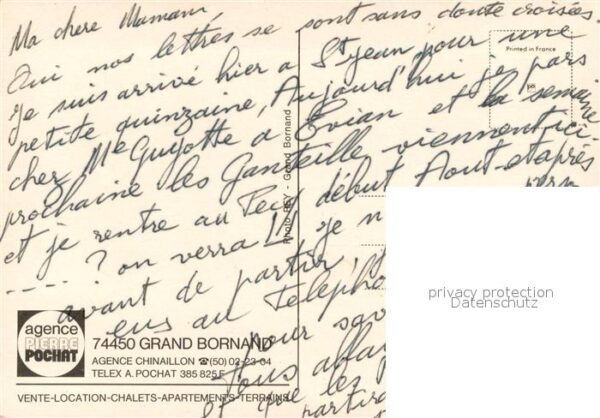 Ma chere Maman,
Oui nos lettres se sont sans doute croisées.
je suis arrivé hier a St jean pour une
petite quinzaine, Aujourd'hui je pars
cher Me Guyotte a Evian et la semaine
prochaine les Ganteille viennent ici
et je rentre au Pecq début Aout et après
---- ? on verra !! je n
avant de partir,
eus au Telepho
Pour sav
Vous allai
et que les
partira
Printed in France
Photo REY - Grand Bornand
agence
PIERRE
POCHAT
74450 GRAND BORNAND
AGENCE CHINAILLON ☎(50) 02-23-64
TELEX A. POCHAT 385 825 F
VENTE-LOCATION-CHALETS-APARTEMENTS-TERRAINS
privacy protection
Datenschutz